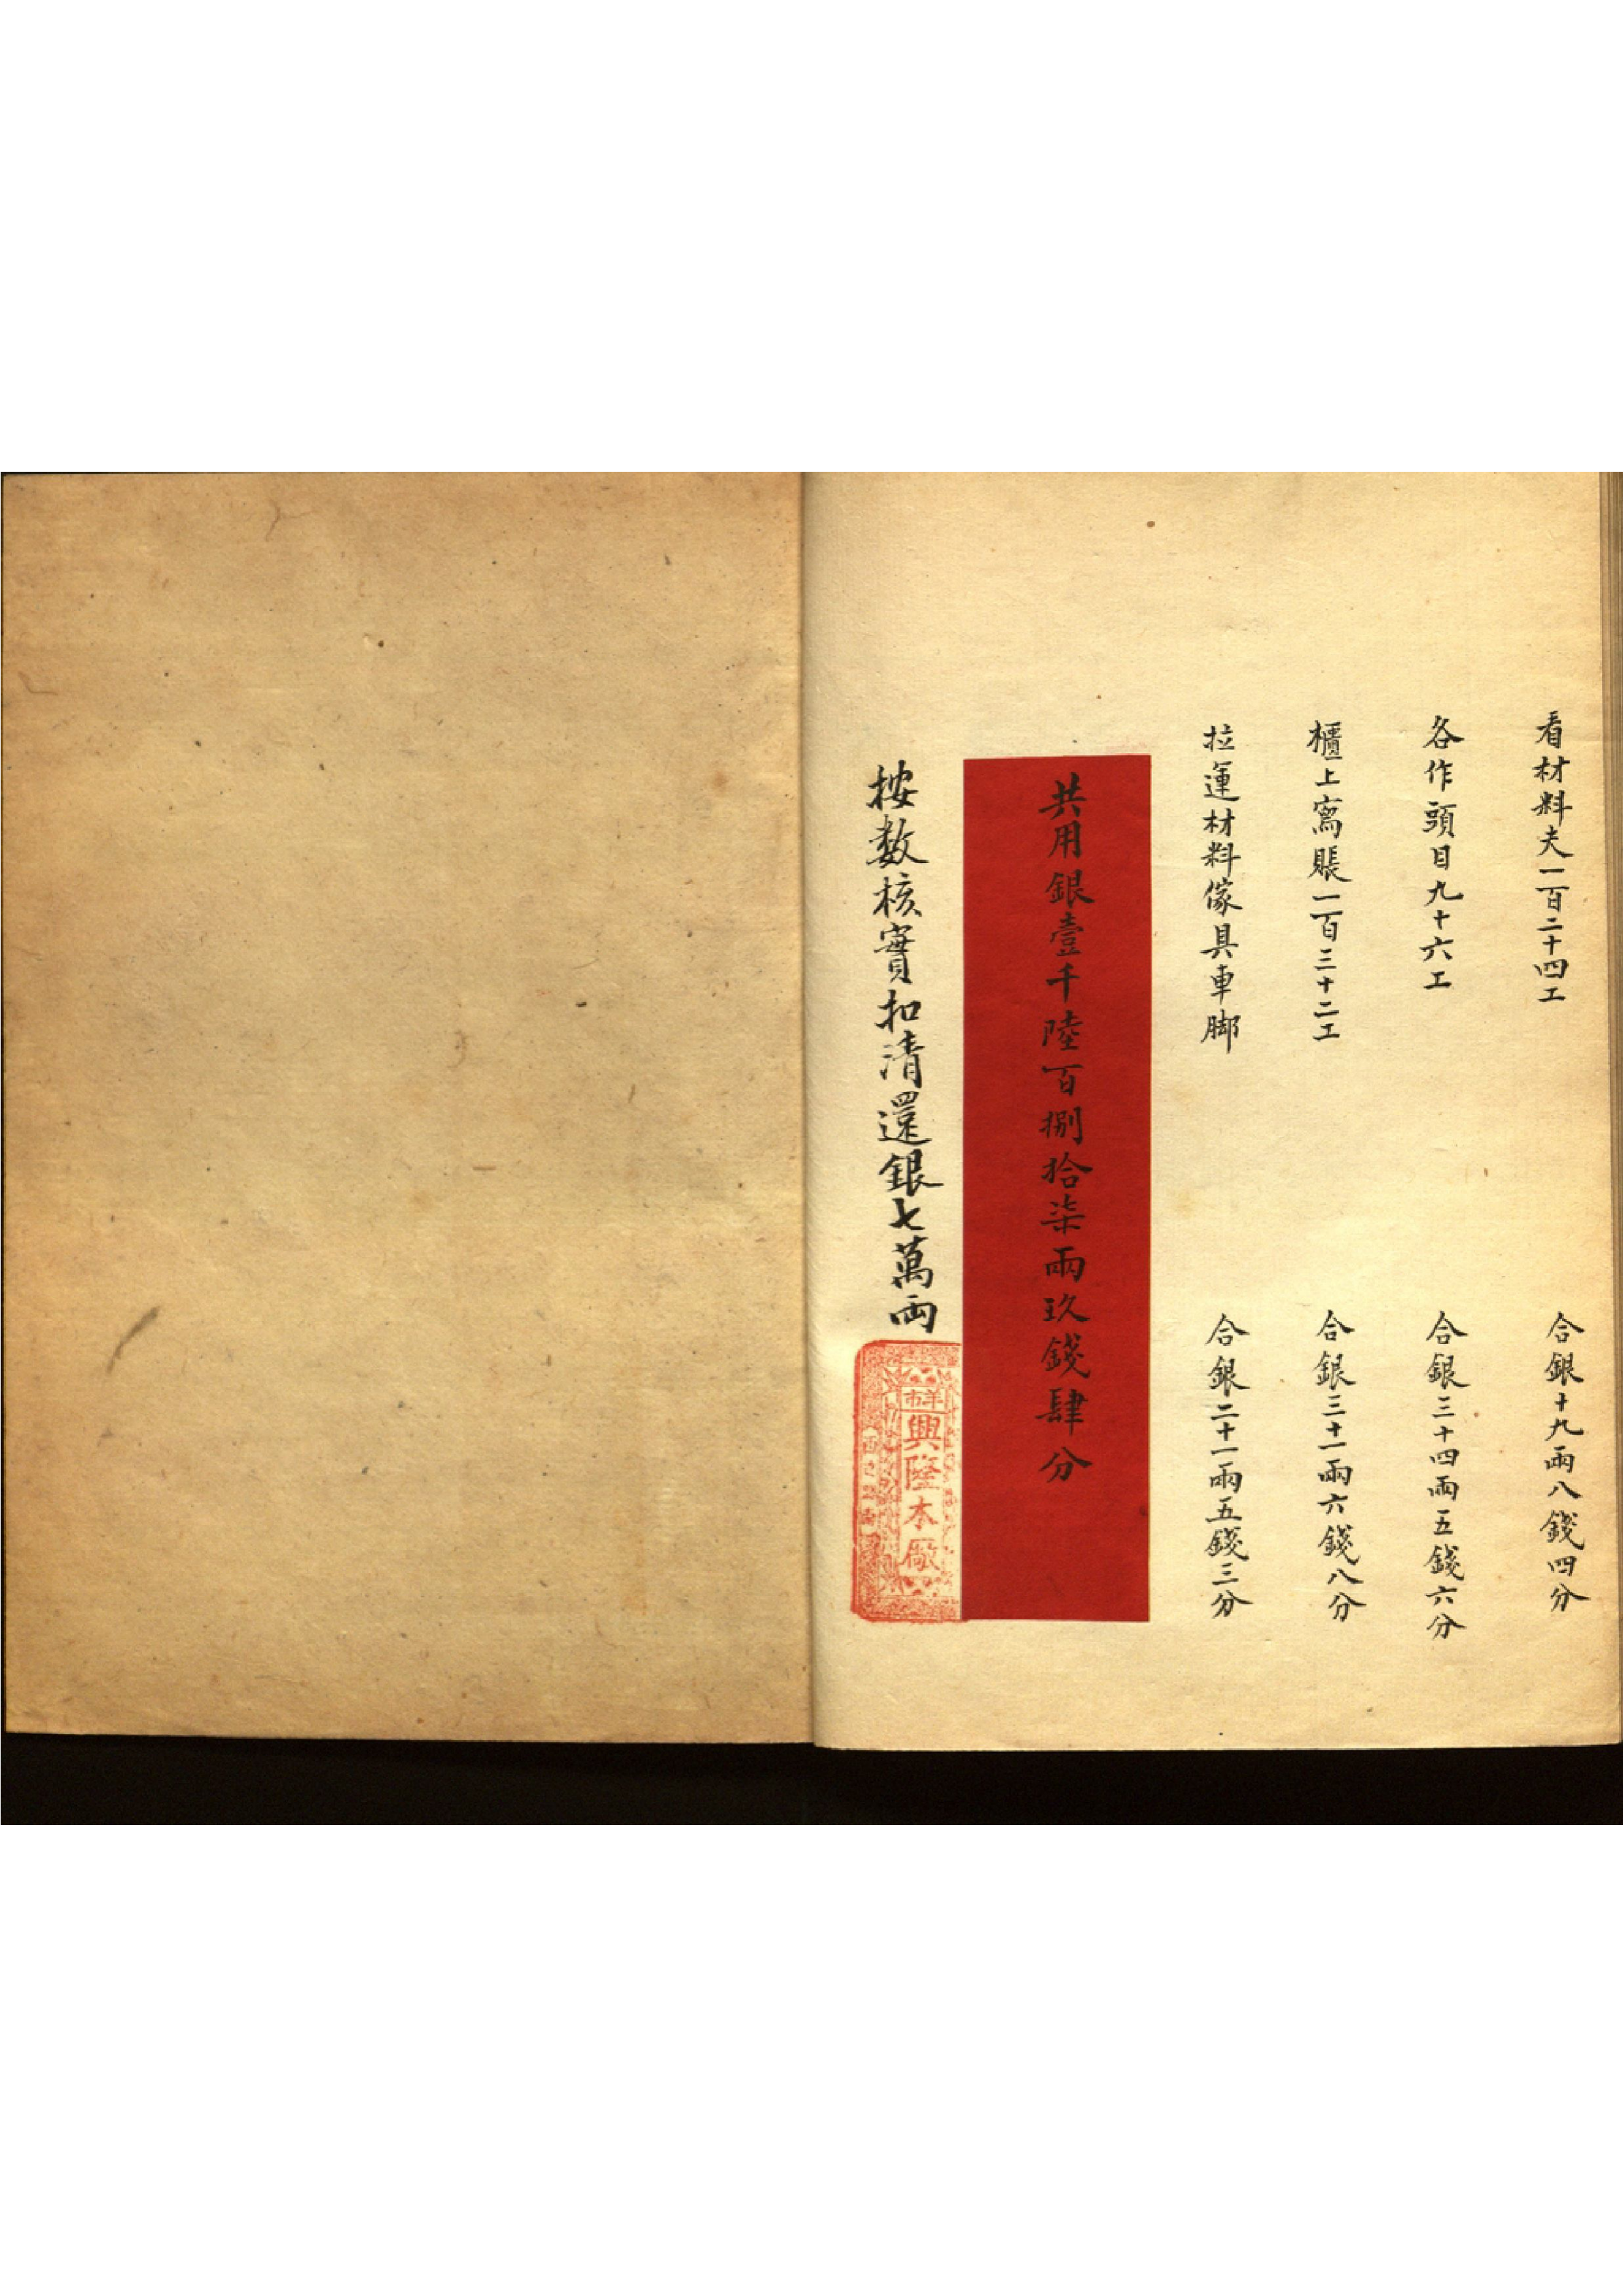 看材料夫一百二十四工
合銀十九兩八錢四分
各作頭目九十六工
合銀三十四兩五錢六分
櫃上寫賬一百三十二工
合銀三十一兩六錢八分
拉運材料傢具車脚
合銀二十一兩五錢三分
共用銀壹千陸百捌拾柒兩玖錢肆分
按数核實扣清還銀七萬兩
羊市
興隆木廠